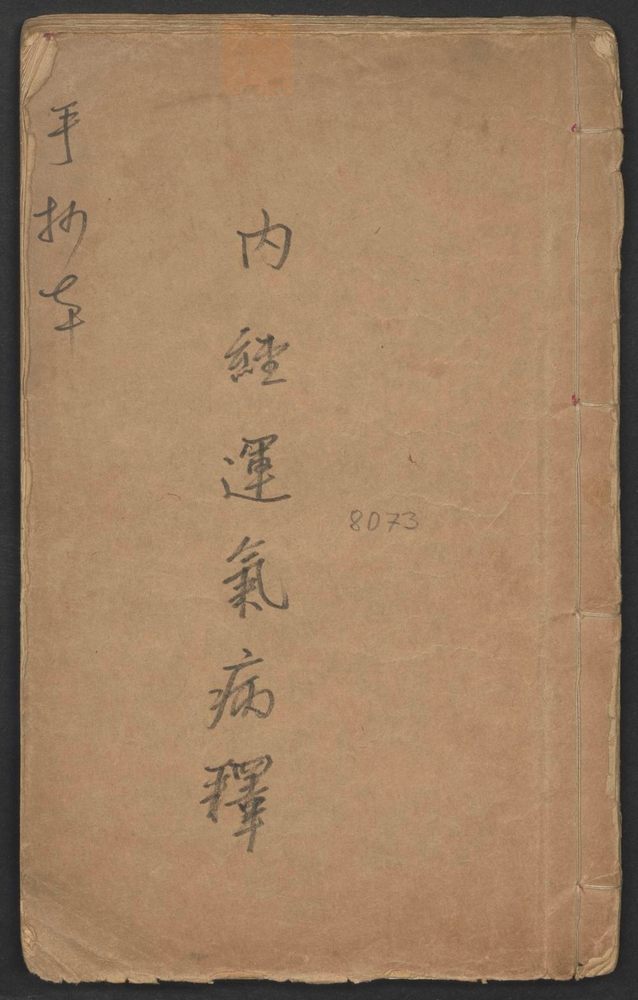 内經運氣病釋
手抄本
8073